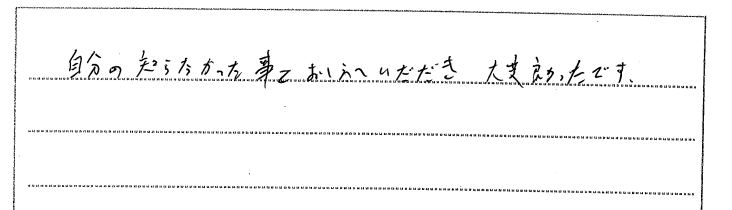 自分の知らなかった事をおしえていただき 大変良かったです。